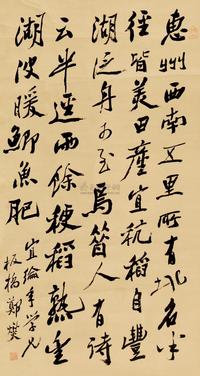 惠州西南五里所有地名半
徑皆美田宜秔稻自豐
湖泛舟可至焉昔人有詩
云半逕雨餘粳稻熟豐
湖波暖鯽魚肥
宜綸年學兄
板橋鄭燮